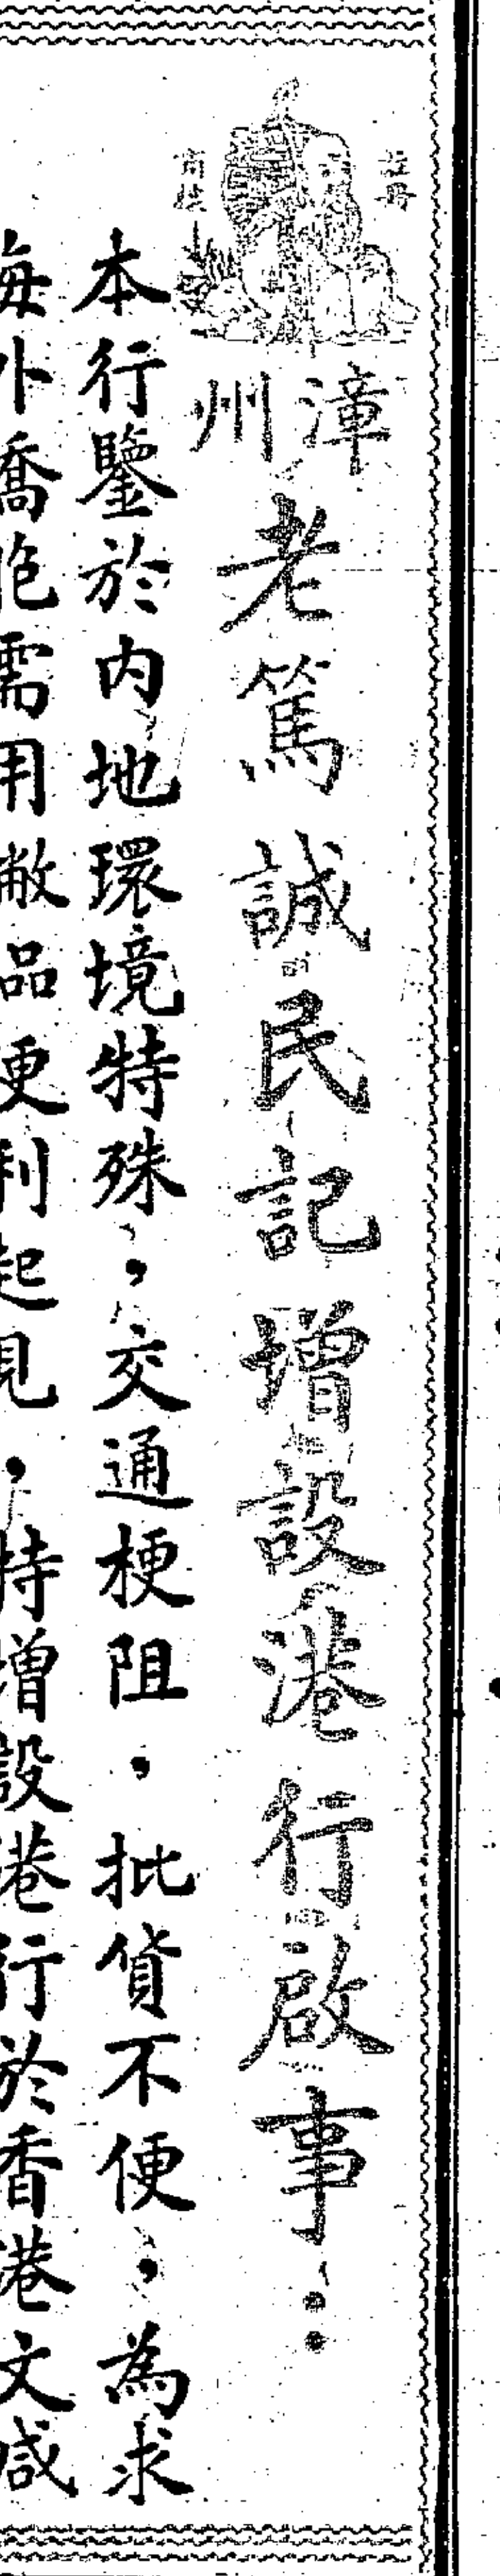 註冊
商標
漳州老篤誠民記增設港行啟事：
本行鑒於內地環境特殊，交通梗阻，批貨不便，為求
海外僑胞需用敝品便利起見，特增設港行於香港文咸